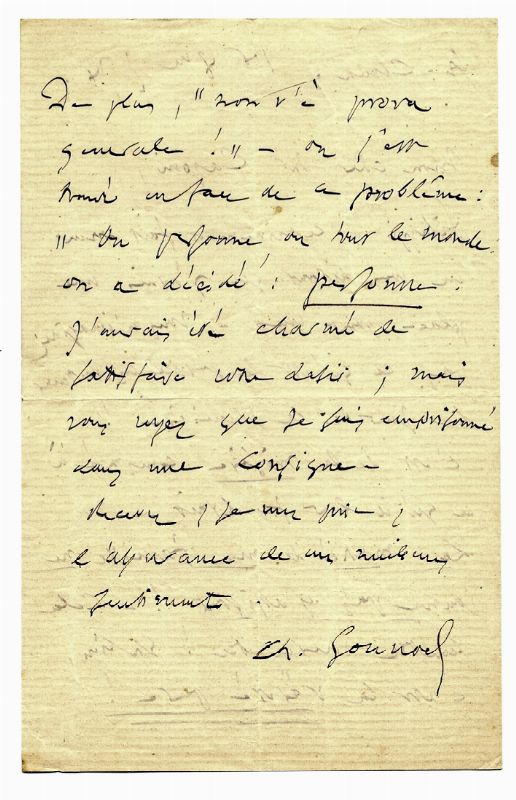 De plus, "non v'è prova
generale!" – on s'est
trouvé en face de ce problème:
"Ou personne, ou tout le monde.
on a décidé: personne.
J'aurais été charmé de
satisfaire votre désir; mais
vous voyez que je suis emprisonné
dans une Consigne –
Recevez, je vous prie,
l'assurance de mes meilleurs
sentiments.
Ch. Gounod